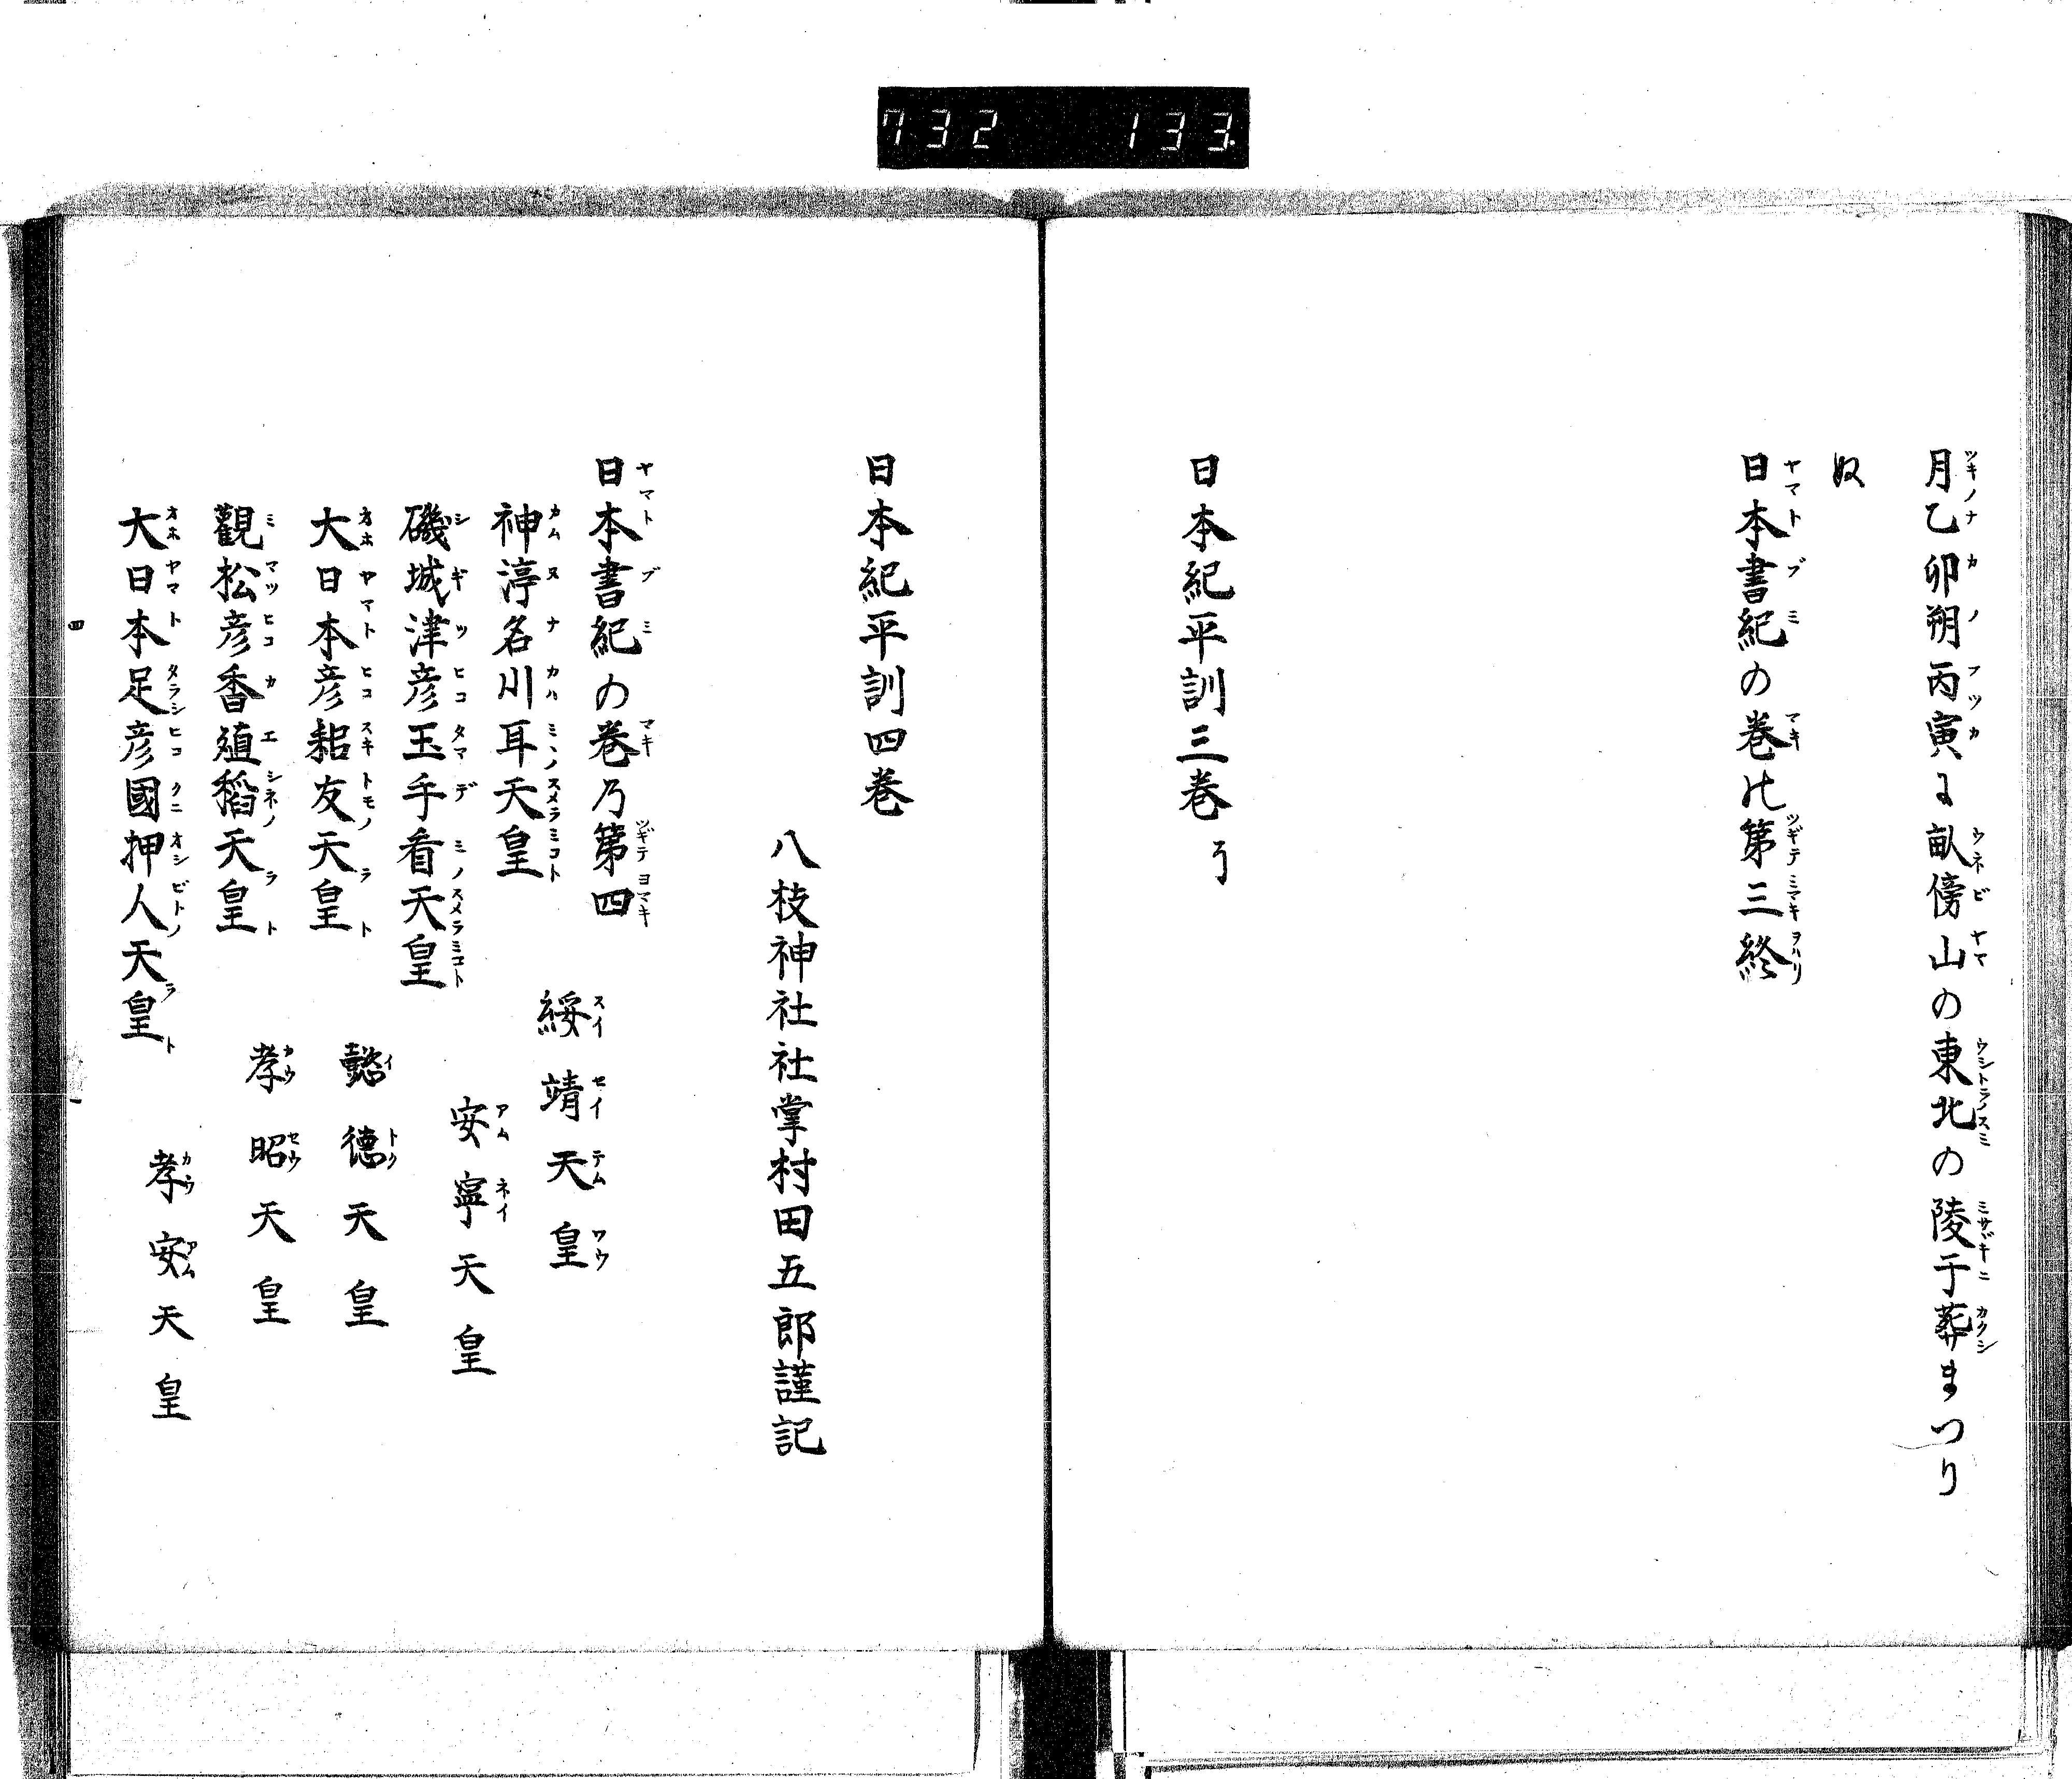 732 133.
月乙卯朔丙寅に畝傍山の東北の陵于葬まつり
ぬ
日本書紀の巻能第三終
日本紀平訓三巻
日本紀平訓四巻
八枝神社社掌村田五郎謹記
日本書紀の巻乃第四
神渟名川耳天皇 綏靖天皇
磯城津彦玉手看天皇 安寧天皇
大日本彦耜友天皇 懿徳天皇
觀松彦香殖稻天皇 孝昭天皇
大日本足彦國押人天皇 孝安天皇
四